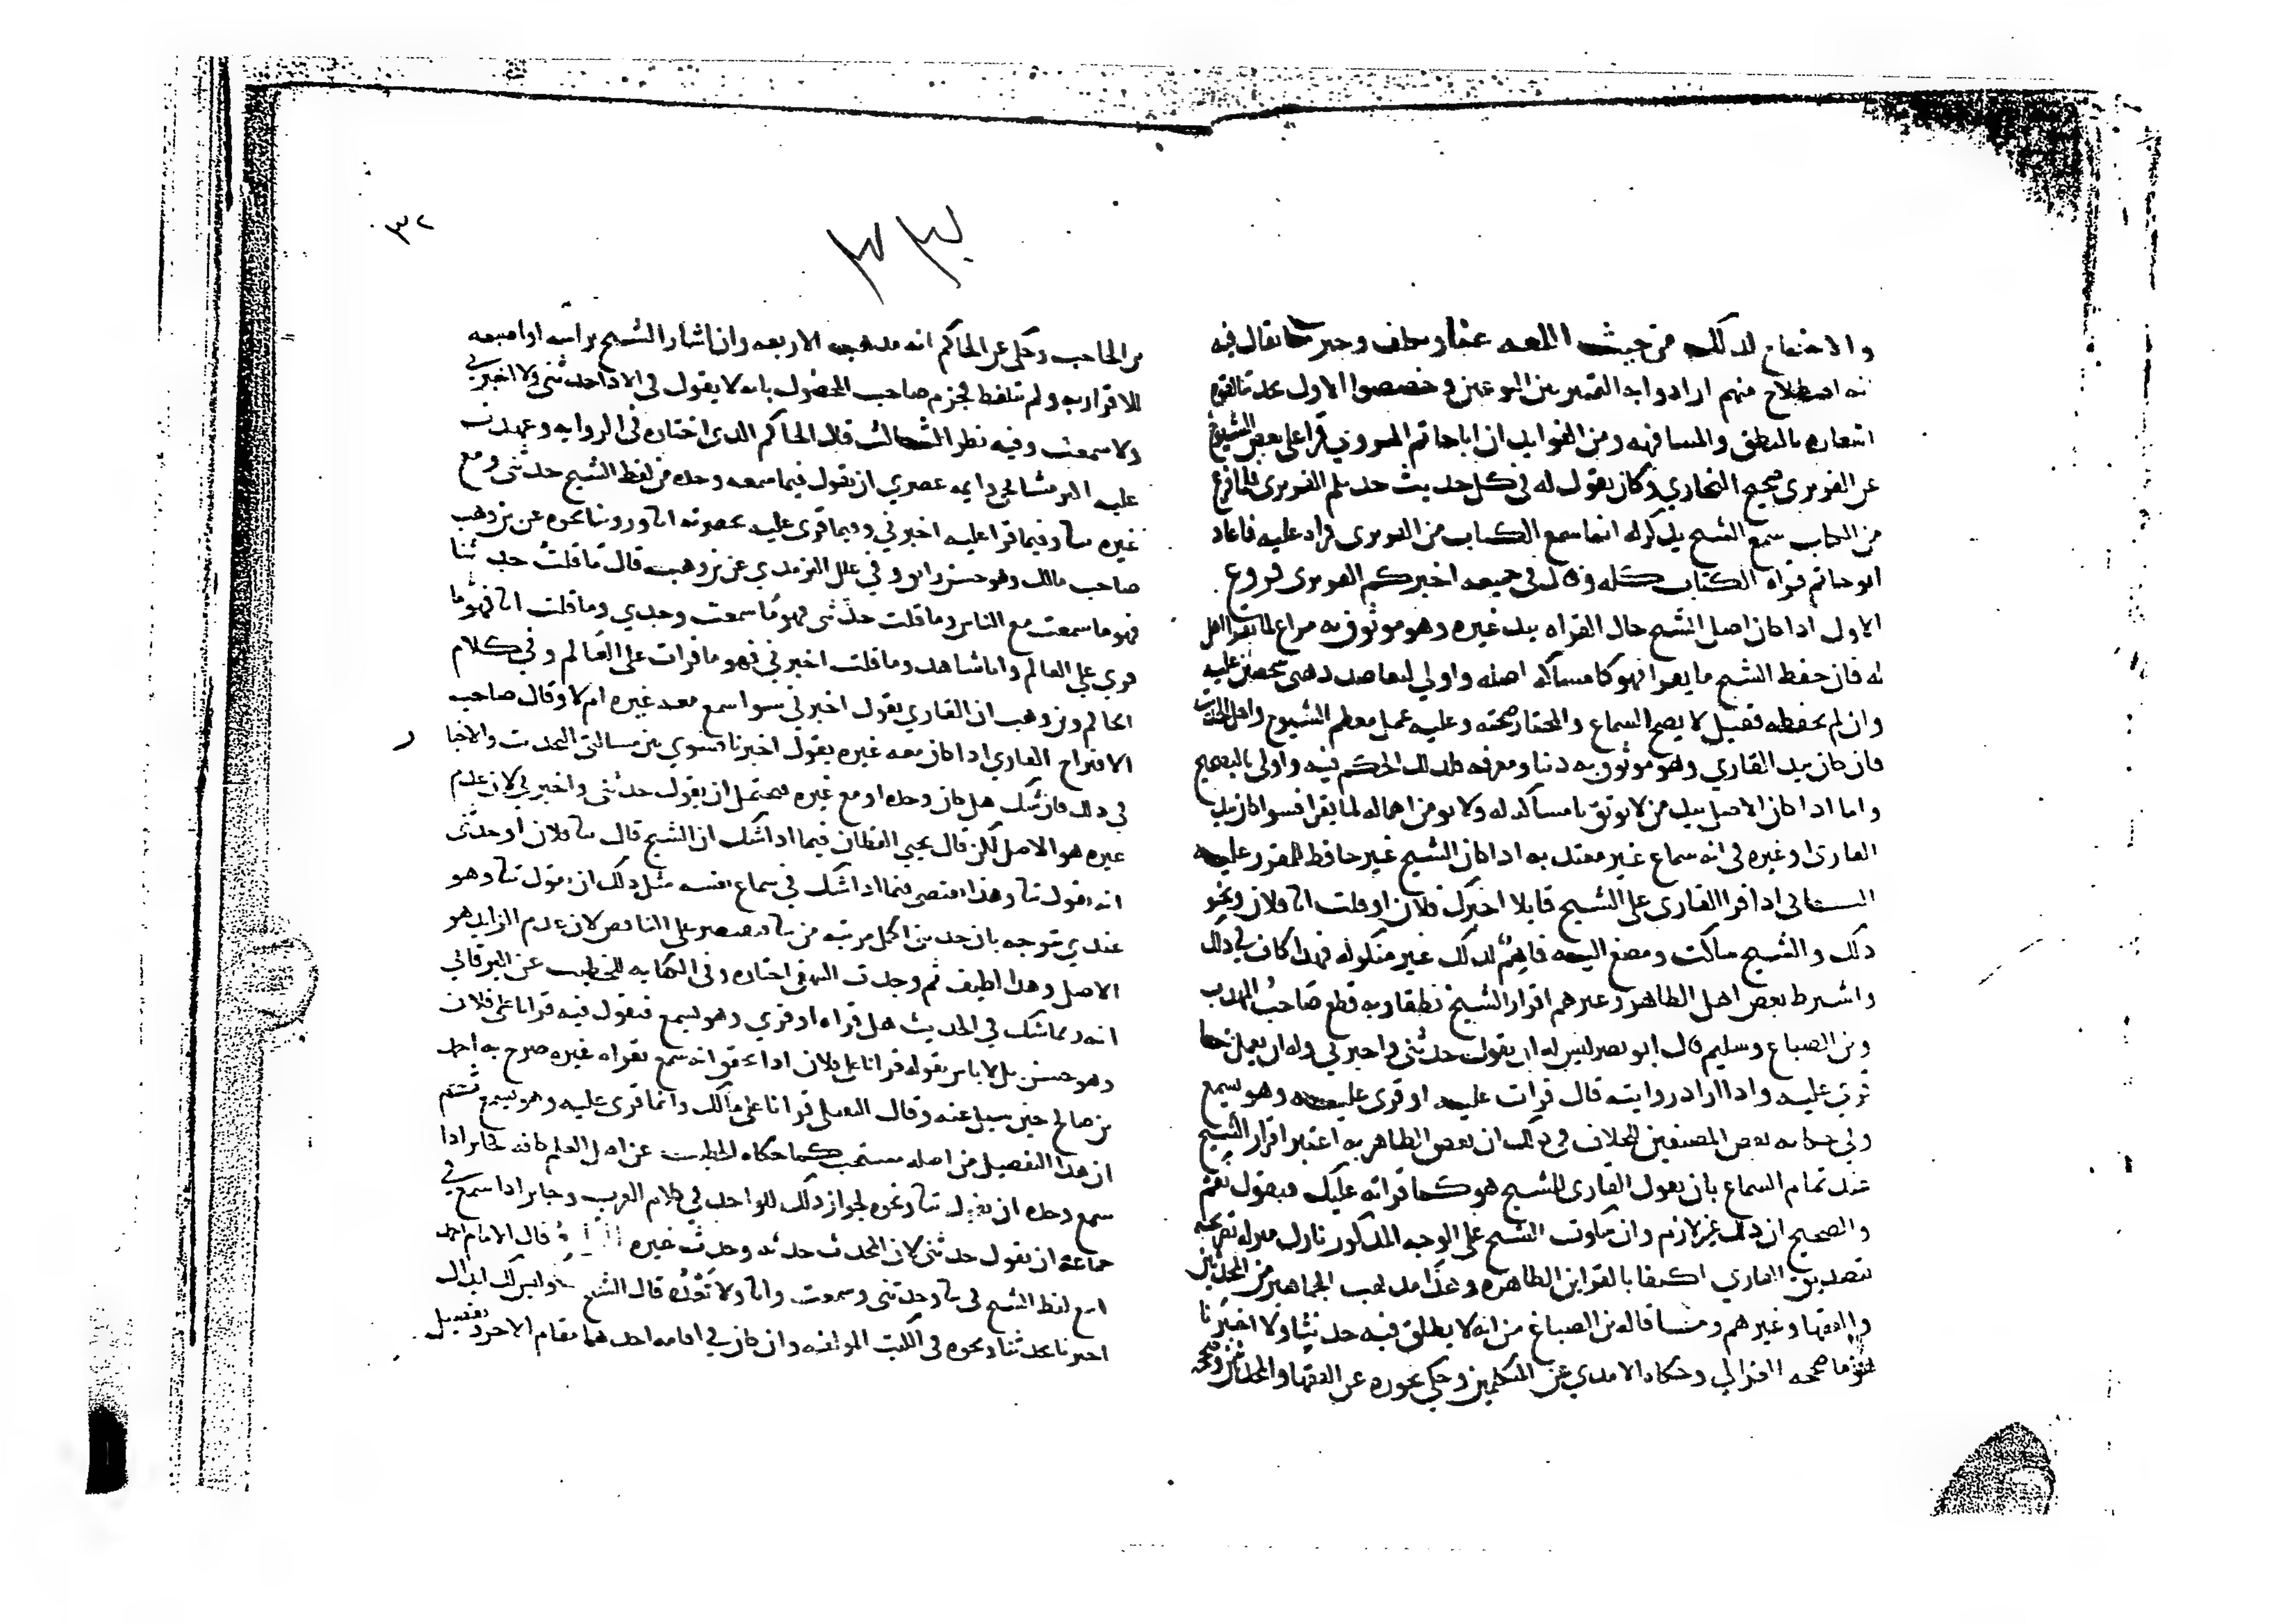 والاحتجاج لذلك من حيث اللغة عناد وتكلف وخير ما يقال فيه
انه اصطلاح منهم ارادوا به التمييز بين النوعين وخصصوا الاول بحدثنا لقوة
اشعاره بالنطق والمشافهة ومن الفوايد ان ابا حاتم الهروي قرا على بعض الشيوخ
عن الفربرى صحيح البخاري وكان يقول له في كل حديث حدثكم الفربرى فلما فرغ
من الكتاب سمع الشيخ يذكر له انما سمع الكتاب من الفربرى قراه عليه فاعاد
ابو حاتم قراه الكتاب كله وقال له في جميعه اخبركم الفربرى فروع
الاول اذا كان اصل الشيخ حال القراه بيد غيره وهو موثوق به مراع لما يقرا اهل
له فان حفظ الشيخ ما يقرا فهو كامساكه اصله واولى لتعاضد ذهني شخصين عليه
وان لم يحفظه فقيل لا يصح السماع والمختار صحته وعليه عمل معظم الشيوخ واهل الحديث
فان كان بيد القاري وهو موثوق به دينا ومعرفه فكذلك الحكم فيه واولى بالتصحيح
واما اذا كان الاصل بيد من لا يوثق بامساكه له ولا يومن اهماله لما يقرا فسوا كان بيد
القارى او غيره في انه سماع غير معتد به اذا كان الشيخ غير حافظ للمقرو عليه
الثاني اذا قرا القارى على الشيخ قايلا اخبرك فلان او قلت انا فلان ونحو
ذلك والشيخ ساكت ومصغ اليه فاهم لذلك غير منكر له فهذا كاف في ذلك
واشترط بعض اهل الظاهر وغيرهم اقرار الشيخ نطقا وبه قطع صاحب المهذب
وبن الصباغ وسليم قال ابو نصر ليس له ان يقول حدثني واخبرني وله ان يعمل بما
قري عليه واذا اراد روايته قال قرات عليه او قرى عليه وهو يسمع
وفي حكايه بعض المصنفين للخلاف في ذلك ان بعض الظاهريه اعتبر اقرار الشيخ
عند تمام السماع بان يقول القارى للشيخ هو كما قراته عليك فيقول نعم
والصحيح ان ذلك غير لازم وان سكوت الشيخ على الوجه المذكور نازل منزله تصريحه
بتصديق القاري اكتفا بالقراين الظاهره وهذا مذهب الجماهير من المحدثين
والفقها وغيرهم وما قاله بن الصباغ من انه لا يطلق فيه حدثنا ولا اخبرنا
هو ما صححه الغزالي وحكاه الامدي عن المتكلمين وحكي تجويزه عن الفقها والمحدثين وصححه
٣٢
٣٣
بن الحاجب وحكى عن الحاكم انه مذهب الاربعه وان اشار الشيخ براسه او اصبعه
للاقرار به ولم يتلفظ فجزم صاحب المحصول بانه لا يقول في الادا حدثني ولا اخبرني
ولا سمعت وفيه نظر الثالث قال الحاكم الذى اختاره في الروايه وعهدت
عليه اكثر مشايخي وايمه عصري ان يقول فيما سمعه وحده من لفظ الشيخ حدثني ومع
غيره ثنا وفيما قرا عليه اخبرني وفيما قرى عليه بحضرته انا وروينا نحوه عن بن وهب
صاحب مالك وهو حسن رايق وفي علل الترمذي عن بن وهب قال ما قلت حدثنا
فهو ما سمعت مع الناس وما قلت حدثني فهو ما سمعت وحدي وما قلت انا فهو ما
قري على العالم وانا شاهد وما قلت اخبرني فهو ما قرات على العالم وفي كلام
الحاكم وبن وهب ان القاري يقول اخبرني سوا سمع معه غيره ام لا وقال صاحب
الاقتراح القاري اذا كان معه غيره يقول اخبرنا فسوي بين مسالتي التحديث والاخبا
ر
في ذلك فان شك هل كان وحده او مع غيره فيحتمل ان يقول حدثني واخبرني لان عدم
غيره هو الاصل لكن قال يحيي القطان فيما اذا شك ان الشيخ قال ثنا فلان او حدثني
انه يقول ثنا وهذا يقتضي فيما اذا شك في سماع نفسه مثل ذلك ان يقول ثنا وهو
عندي يتوجه بان حدثني اكمل مرتبه من ثنا فيقتصر على الناقص لان عدم الزايد هو
الاصل وهذا لطيف ثم وجدت البيهقي اختاره وفي الكفايه للخطيب عن البرقاني
انه ربما شك في الحديث هل قراه او قري وهو يسمع فيقول فيه قرانا على فلان
وهو حسن بل لا باس بقوله قرانا على فلان اذا تحقق انه سمع بقراه غيره صرح به احمد
بن صالح حين سيل عنه وقال النفيلي قرانا على مالك وانما قرى عليه وهو يسمع ثم
ان هذا التفصيل من اصله مستحب كما حكاه الخطيب عن اهل العلم كافه فجايز اذا
سمع وحده ان يقول ثنا ونحوه لجواز ذلك للواحد في كلام العرب وجايز اذا سمع في
جماعة ان يقول حدثني لان المحدث حدثه وحدث غيره قال الامام احمد
اتبع لفظ الشيخ في ثنا وحدثني وسمعت وانا ولا تعدُه قال الشيخ وليس لك ابدال
اخبرنا بحدثنا ونحوه في الكتب المولفه وان كان في اقامه احدهما مقام الاخر تفصيل